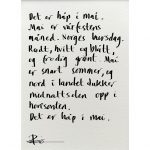 Det er håp i mai.
Mai er vårfestens
måned. Norges hersdag.
Rødt, hvitt og blått,
og frodig grønt. Mai
er snart sommer, og
nord i landet dukker
midnattsolen opp i
horisonten.
Det er håp i mai.